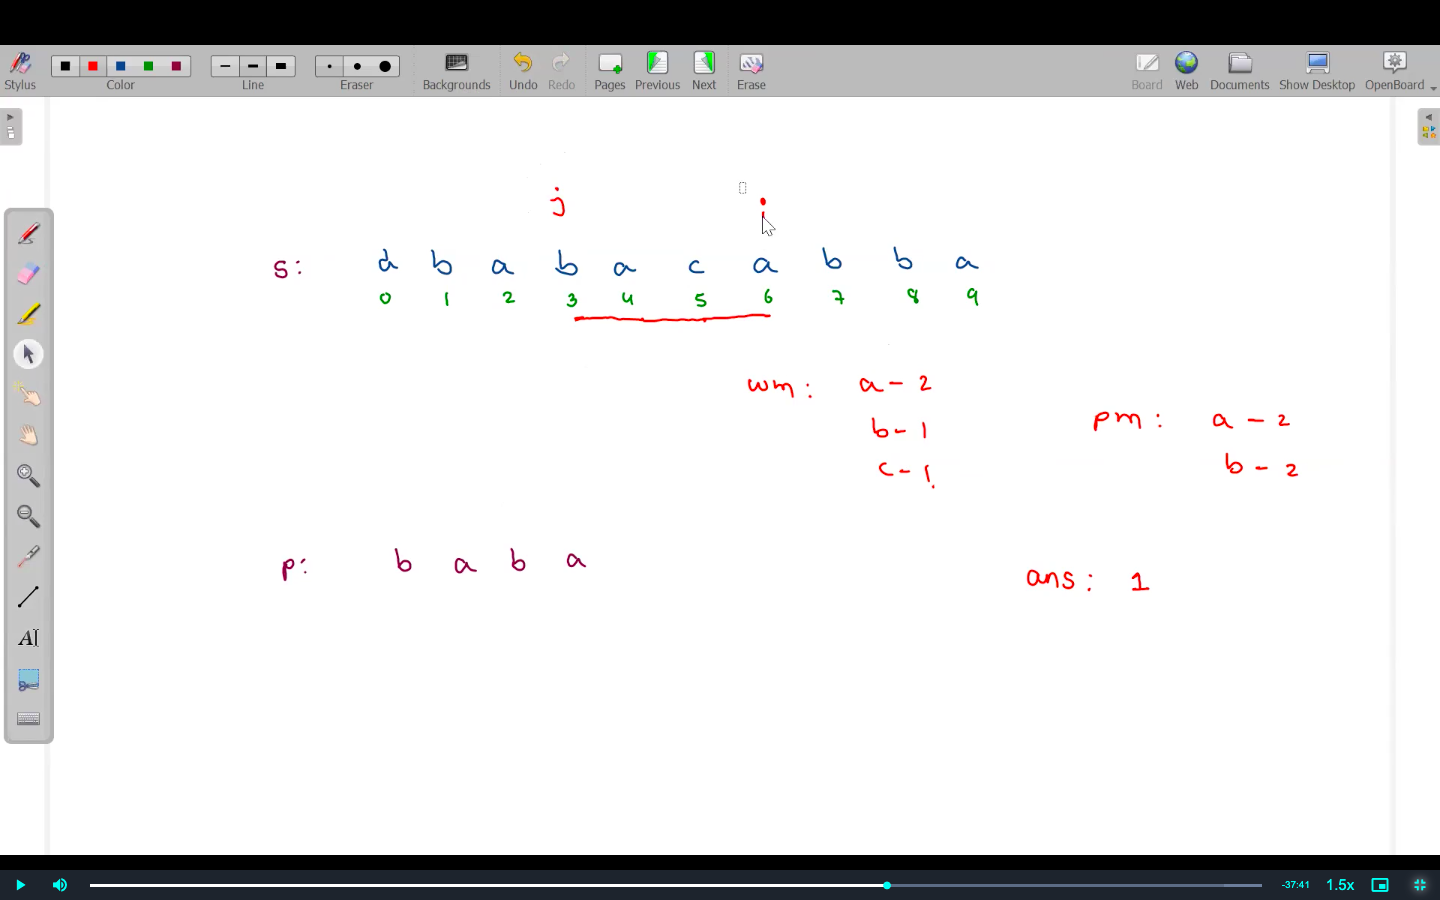 Stylus Color Line Eraser Backgrounds Undo Redo Pages Previous Next Erase Board Web Documents Show Desktop OpenBoard
j i
s: d b a b a c a b b a
0 1 2 3 4 5 6 7 8 9
wm: a - 2
b - 1
c - 1
pm: a - 2
b - 2
p: b a b a
ans: 1
-37:41 1.5x